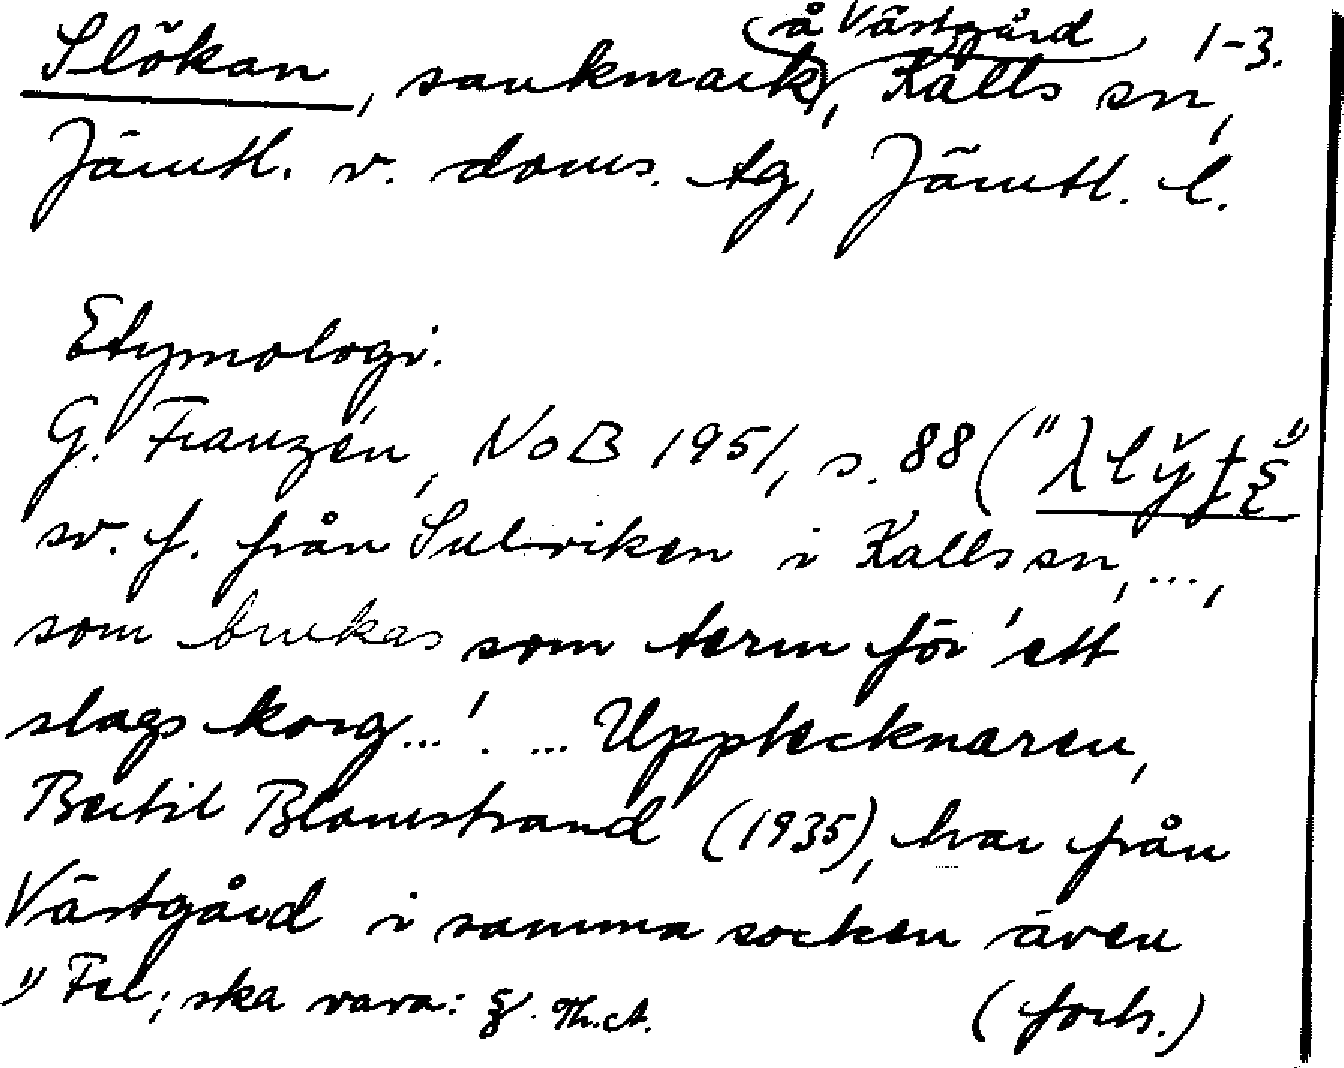 å Västgård 1-3.
Slökan, sankmark, Kalls sn,
Jämtl. v. doms. tg, Jämtl. l.
Etymologi.
G. Franzén, NoB 1951, s. 88 ("
sv. f. från Sulviken i Kalls sn, ...,
som brukas som term för 'ett
slags korg...'. ... Upptecknaren,
Bertil Blomstrand (1935), har från
Västgård i samma socken även
1) Fel; ska vara: Th.ct.
(forts.)